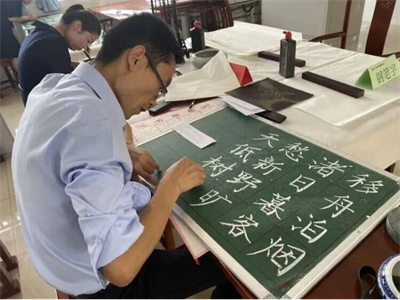 移舟泊烟
渚日暮客
愁新野旷
天低树
钢笔字